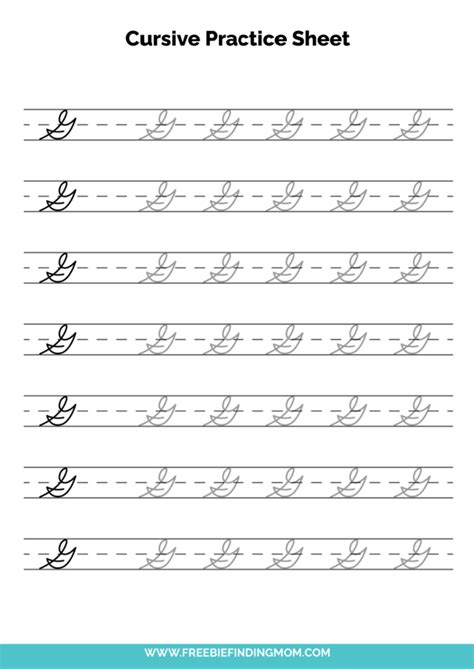 Cursive Practice Sheet
G G G G G G
G G G G G G
G G G G G G
G G G G G G
G G G G G G
G G G G G G
G G G G G G
WWW.FREEBIEFINDINGMOM.COM